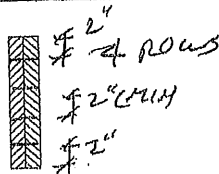 2"
4 ROWS
2"(MIN
2"